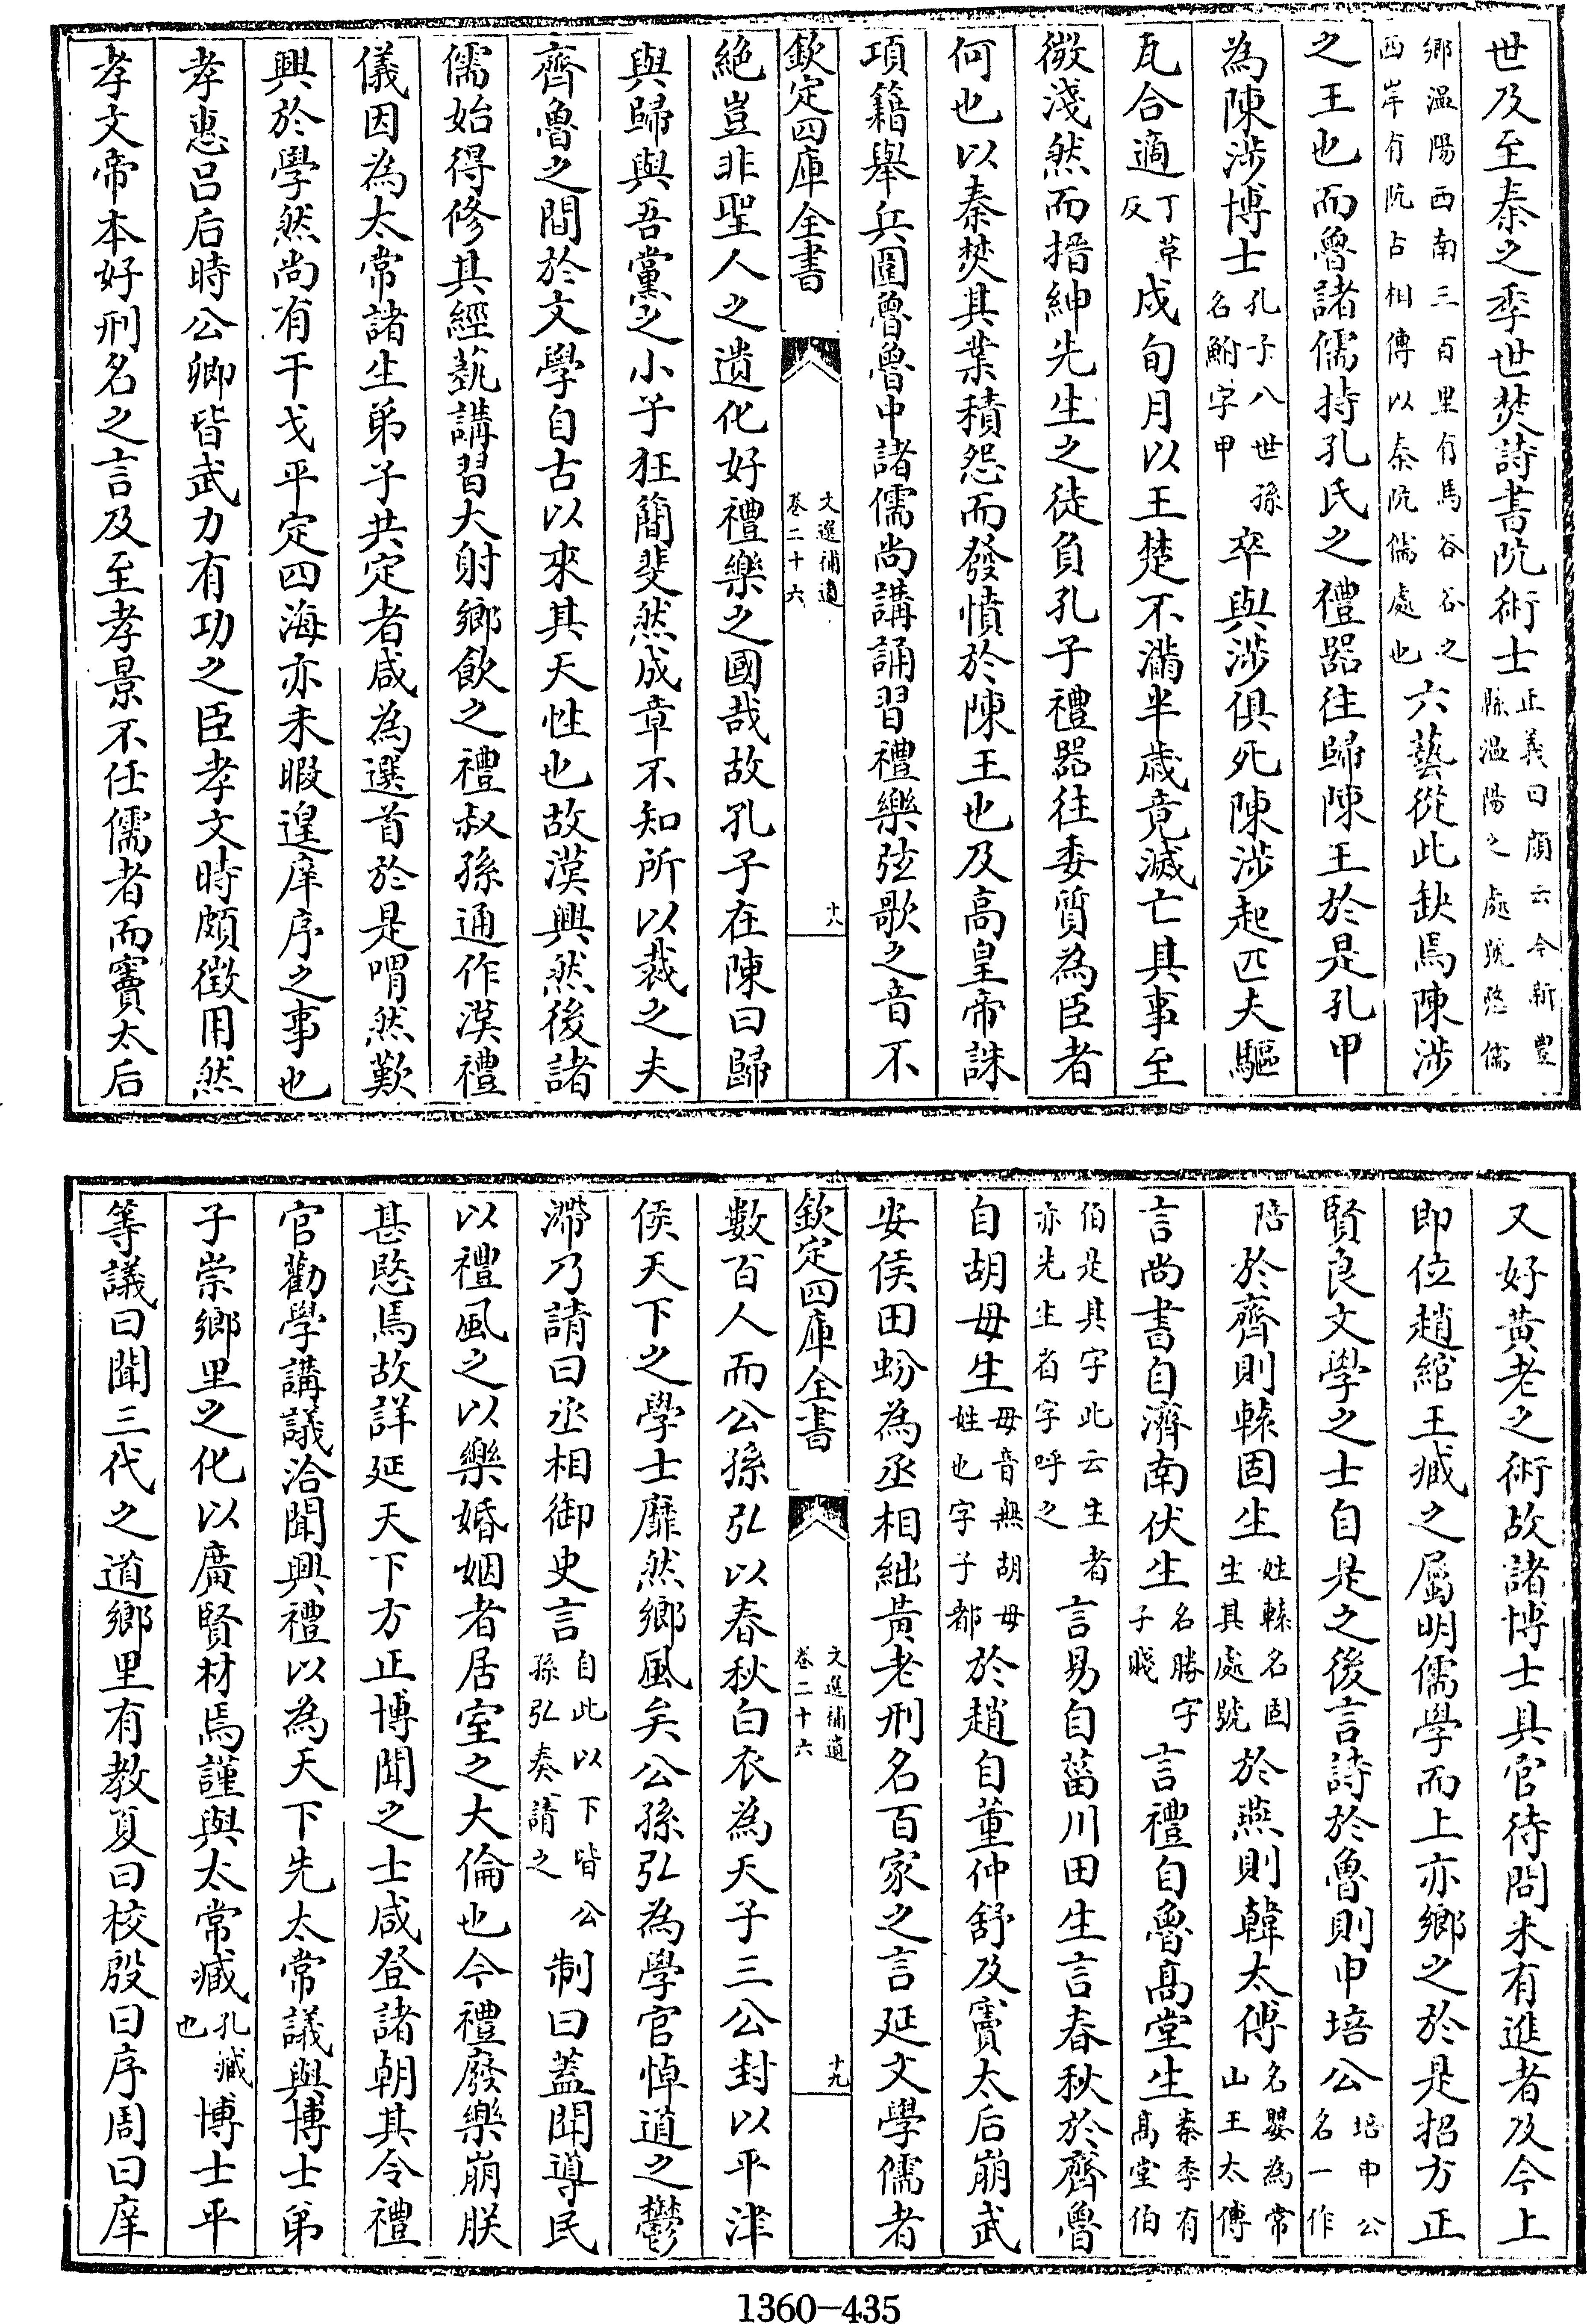 世及至秦之季世焚詩書阬術士正義曰顔云今新豐縣温陽之處號愍儒
鄉温陽西南三百里有馬谷谷之西岸有阬占相傳以秦阬儒處也六藝從此缺焉陳涉
之王也而魯諸儒持孔氏之禮器往歸陳王於是孔甲
為陳涉博士孔子八世孫名鮒字甲卒與涉俱死陳涉起匹夫驅
瓦合適丁革反戍旬月以王楚不滿半歳竟滅亡其事至
微淺然而搢紳先生之徒負孔子禮器往委質為臣者
何也以秦焚其業積怨而發憤於陳王也及高皇帝誅
項籍舉兵圍魯魯中諸儒尚講誦習禮樂弦歌之音不
欽定四庫全書 文選補遺 卷二十六 十八
絶豈非聖人之遺化好禮樂之國哉故孔子在陳曰歸
與歸與吾黨之小子狂簡斐然成章不知所以裁之夫
齊魯之間於文學自古以來其天性也故漢興然後諸
儒始得修其經藝講習大射鄉飲之禮叔孫通作漢禮
儀因為太常諸生弟子共定者咸為選首於是喟然歎
興於學然尚有干戈平定四海亦未暇遑庠序之事也
孝惠吕后時公卿皆武力有功之臣孝文時頗徵用然
孝文帝本好刑名之言及至孝景不任儒者而竇太后
又好黄老之術故諸博士具官待問未有進者及今上
即位趙綰王臧之屬明儒學而上亦鄉之於是招方正
賢良文學之士自是之後言詩於魯則申培公培申公名一作
陪於齊則轅固生姓轅名固生其處號於燕則韓太傅名嬰為常山王太傅
言尚書自濟南伏生名勝字子賤言禮自魯髙堂生秦季有髙堂伯
伯是其字此云生者亦先生者字呼之言易自菑川田生言春秋於齊魯
自胡毋生毋音無胡毋姓也字子都於趙自董仲舒及竇太后崩武
安侯田蚡為丞相絀黄老刑名百家之言延文學儒者
欽定四庫全書 文選補遺 卷二十六 十九
數百人而公孫弘以春秋白衣為天子三公封以平津
侯天下之學士靡然鄉風矣公孫弘為學官悼道之鬱
滯乃請曰丞相御史言自此以下皆公孫弘奏請之制曰蓋聞導民
以禮風之以樂婚姻者居室之大倫也今禮廢樂崩朕
甚愍焉故詳延天下方正博聞之士咸登諸朝其令禮
官勸學講議洽聞興禮以為天下先太常議與博士弟
子崇鄉里之化以廣賢材焉謹與太常臧孔臧也博士平
等議曰聞三代之道鄉里有教夏曰校殷曰序周曰庠
1360-435